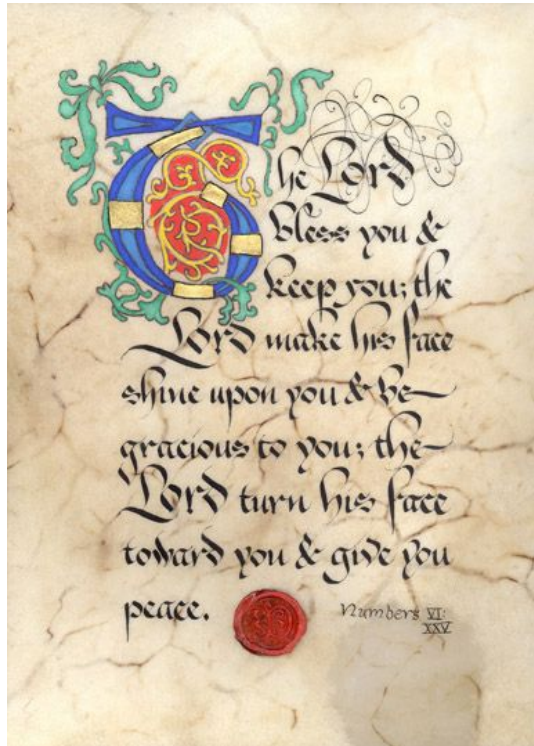 The Lord
bless you &
keep you; the
Lord make his face
shine upon you & be
gracious to you; the
Lord turn his face
toward you & give you
peace.
Numbers VI:
XXV